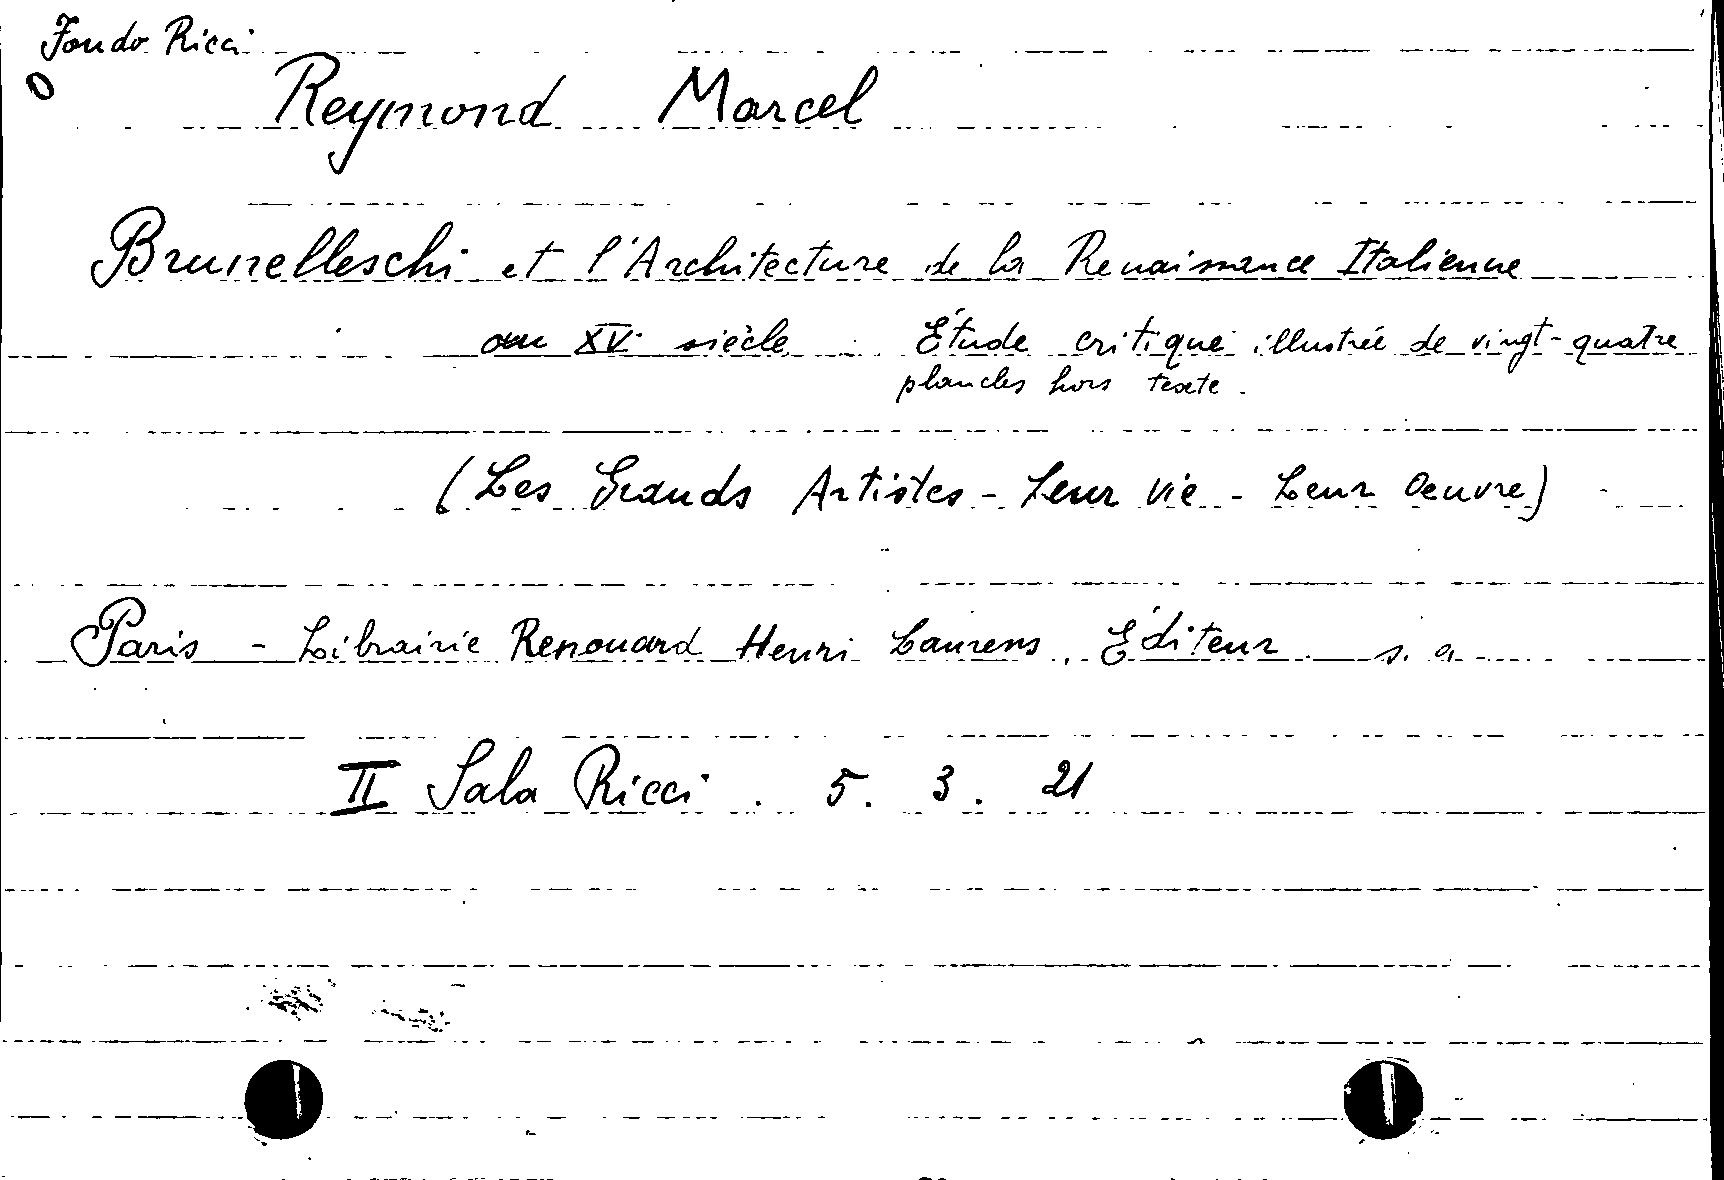 Fondo Ricci
0
Reymond Marcel
Brunelleschi et l'Architecture de la Renaissance Italienne
au XV siècle Étude critique illustrée de vingt-quatre
planches hors texte.
(Les Grands Artistes - Leur vie - Leur Oeuvre)
Paris - Librairie Renouard Henri Laurens, Éditeur s. a
II Sala Ricci . 5. 3. 21